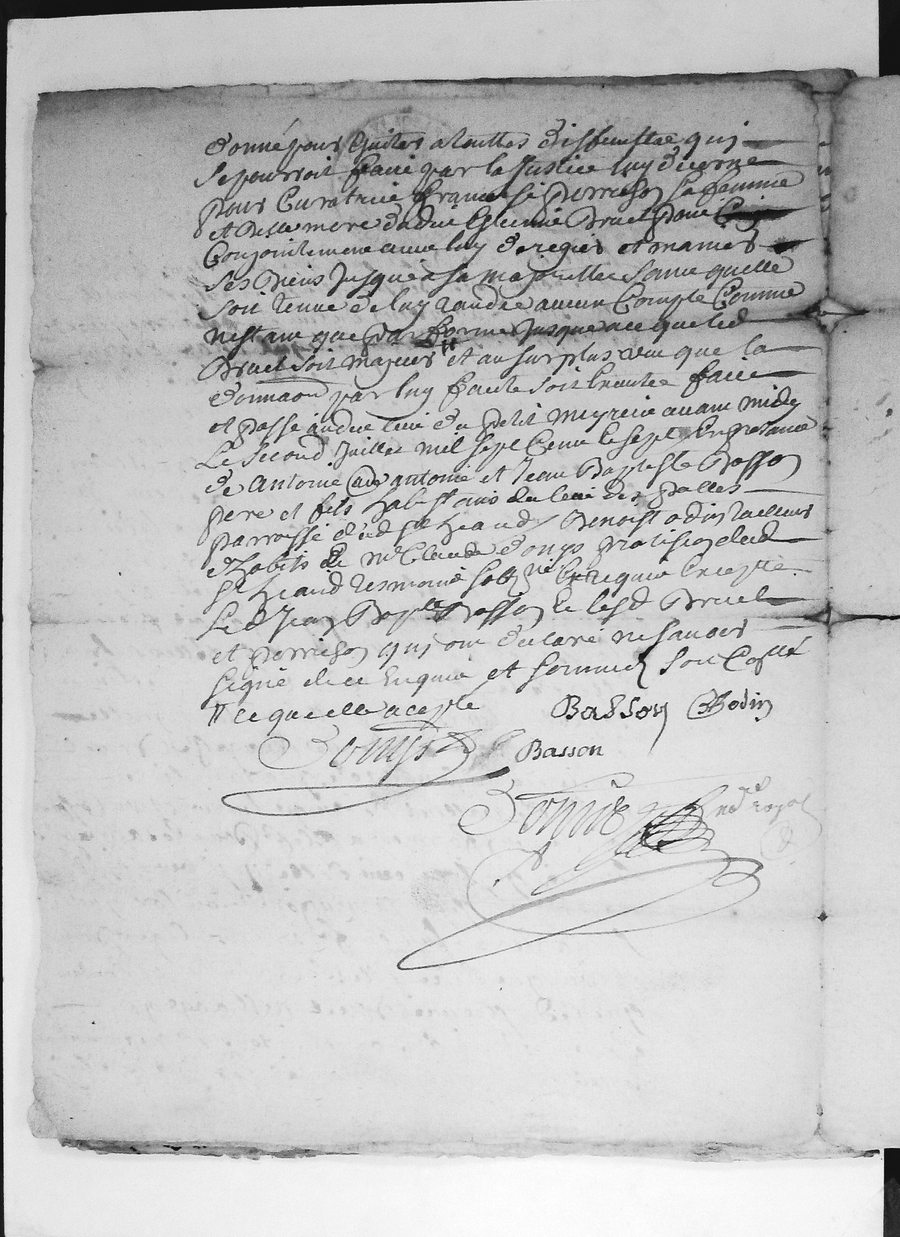 donné pour Eviter a touttes disputtes qui
se pourroit faire par la Justice luy decerne
pour Curatrice françoise perrichon sa femme
et Belle mere dudit Estienne Bruel pour
Conjointement avec luy de regir et manier
ses Biens Jusque a sa majoritte sans quelle
soit tenue de luy randre aucun Compte Comme
nestant que par forme Jusque ace que led
Bruel soit majeur # et au surplus veu que la
donnaon par luy faitte soit Executtée faict
et passé audit lieu du petit avant midy
Le second Juillet mil sept Cent et sept En presance
de Antoine antoine et Jean Baptiste Basson
pere et fils habittans du lieu des Salles
parroisse dud St heand Benoist odin tailleur
dhabits & Mr Claude Bonys praticien dud
St heand tesmoins Requis Excepté
Led Jean Baptte Basson & lesd Bruel
et perrichon qui ont declaré ne savoir
signé de ce Enquis et sommés son Cosse
# ce que elle accepte Basson Bodin
Bonys Basson
nore royal